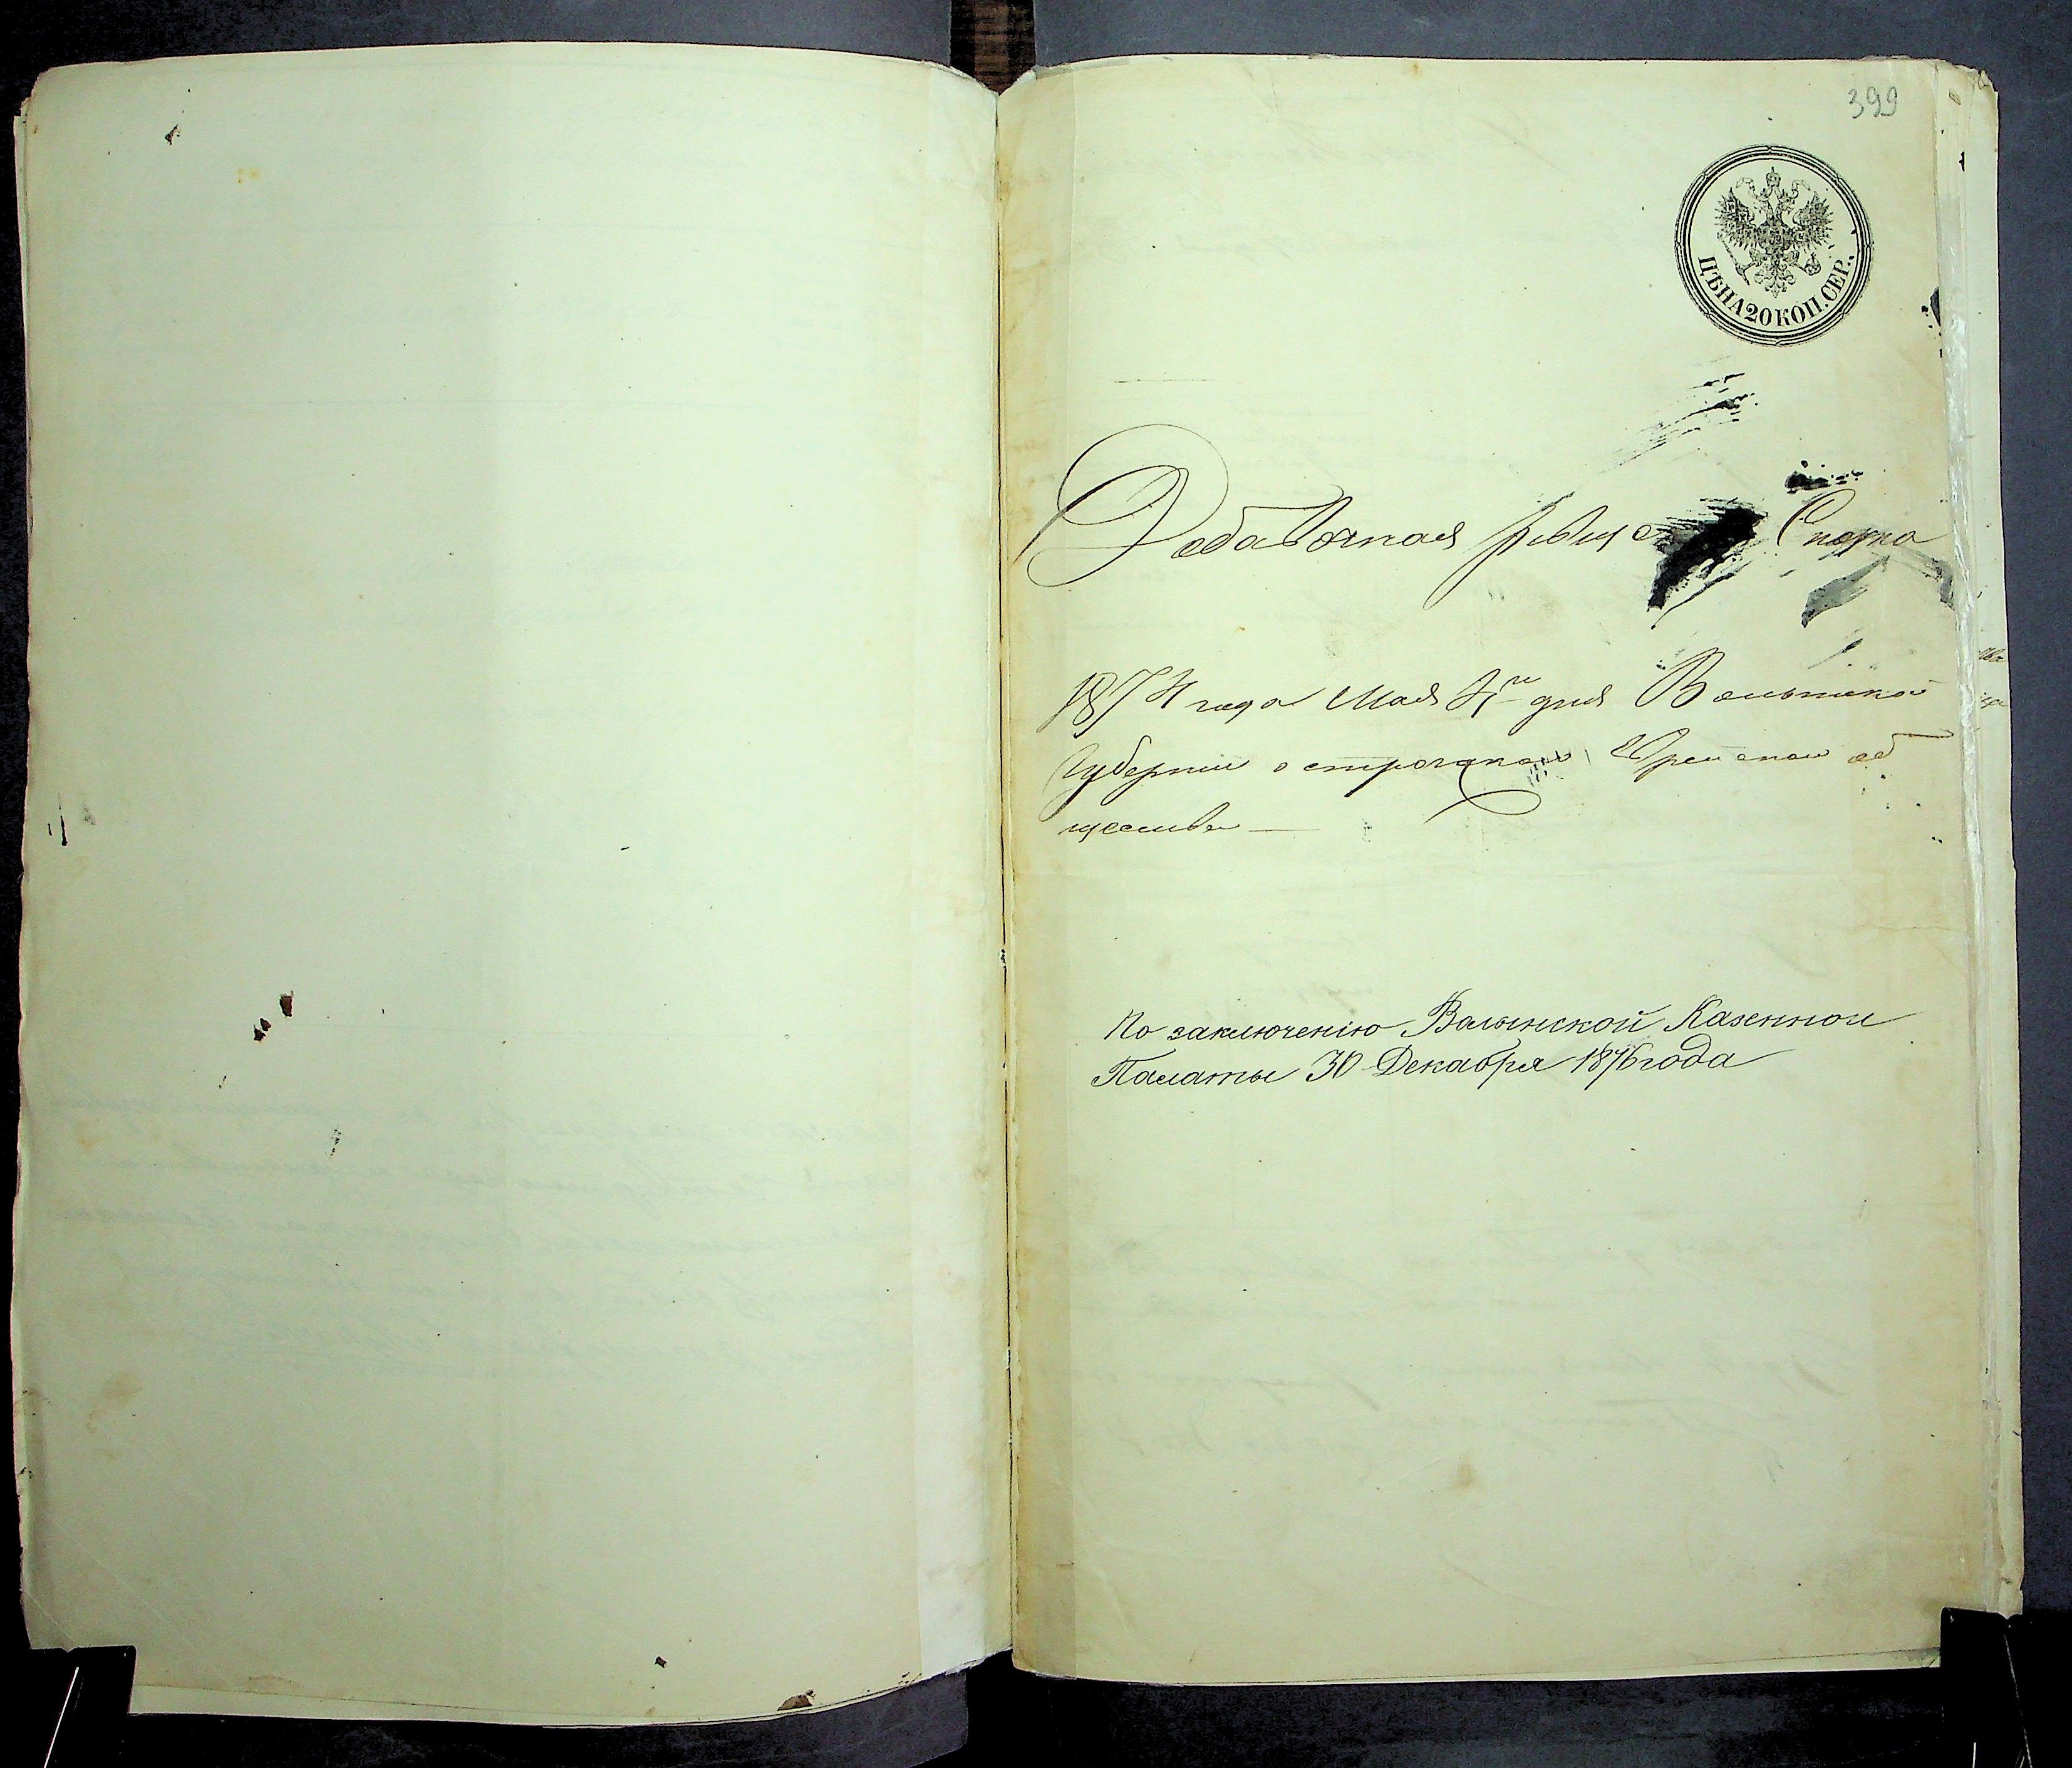 399
ЦѢНА 20 КОП. СЕР.
Добавочная Сказка
1874 года Мая дня Волынской
Губернии острогском Еврейском об
щества —
По заключенію Волынской Казенной
Палаты 30 Декабря 1876 года